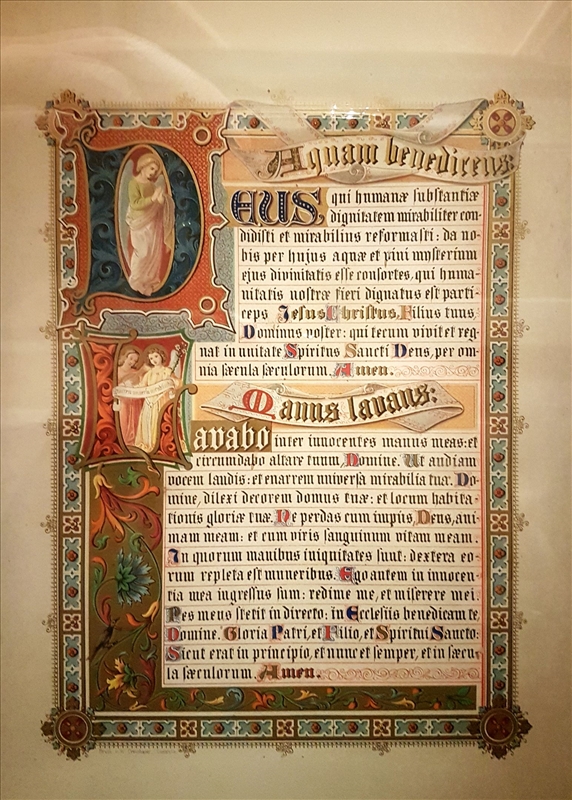 Aquam benedicens
DEUS, qui humanæ substantiæ
dignitatem mirabiliter con-
didisti et mirabilius reformasti: da no-
bis per hujus aquæ et vini mysterium
ejus divinitatis esse consortes, qui huma-
nitatis nostræ fieri dignatus est parti-
ceps Jesus Christus, Filius tuus,
Dominus noster: qui tecum vivit et reg-
nat in unitate Spiritus Sancti Deus, per om-
nia sæcula sæculorum. Amen.
Manus lavans:
Lavabo inter innocentes manus meas: et
circumdabo altare tuum, Domine. Ut audiam
vocem laudis: et enarrem universa mirabilia tua. Do-
mine, dilexi decorem domus tuæ: et locum habita-
tionis gloriæ tuæ. Ne perdas cum impiis, Deus, ani-
mam meam: et cum viris sanguinum vitam meam.
In quorum manibus iniquitates sunt: dextera eo-
rum repleta est muneribus. Ego autem in innocen-
tia mea ingressus sum: redime me, et miserere mei.
Pes meus stetit in directo: in Ecclesiis benedicam te
Domine. Gloria Patri, et Filio, et Spiritui Sancto:
Sicut erat in principio, et nunc et semper, et in sæcu-
la sæculorum. Amen.